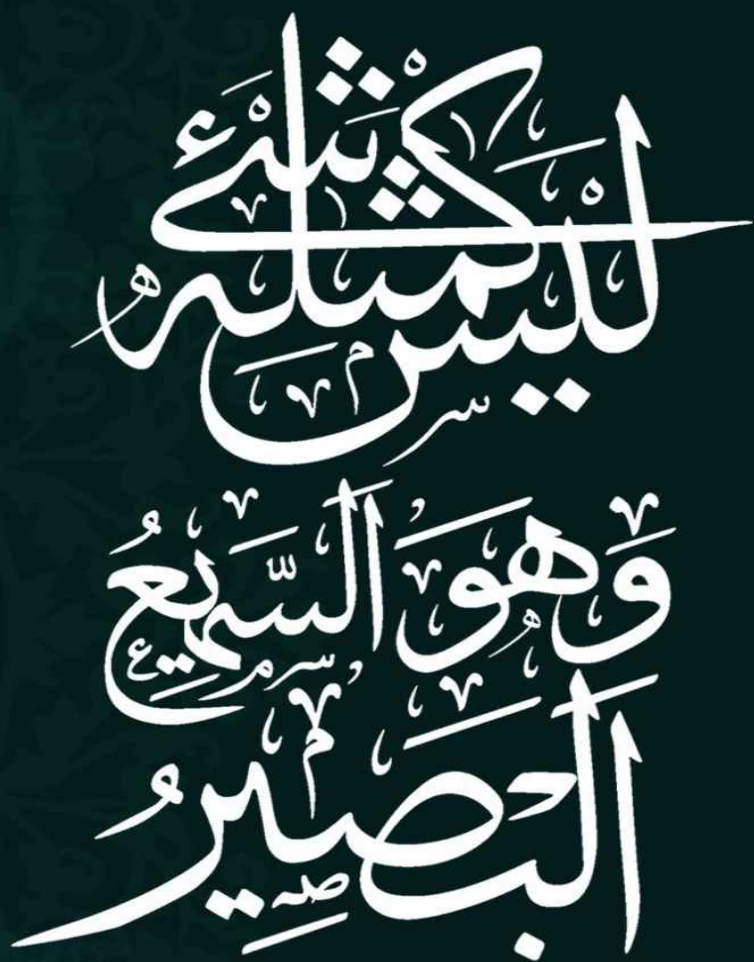 لَيْسَ كَمِثْلِهِ شَيْءٌ
وَهُوَ السَّمِيعُ
الْبَصِيرُ